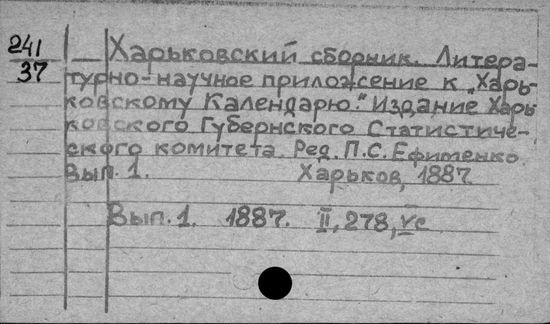 241
37
Харьковский сборник. Литера-
турно-научное приложение к „Харь-
ковскому Календарю." Издание Харь
ковского Губернского Статистиче-
ского комитета. Ред. П.С. Ефименко.
Вып. 1. Харьков, 1887
Вып. 1. 1887. II, 278, V с